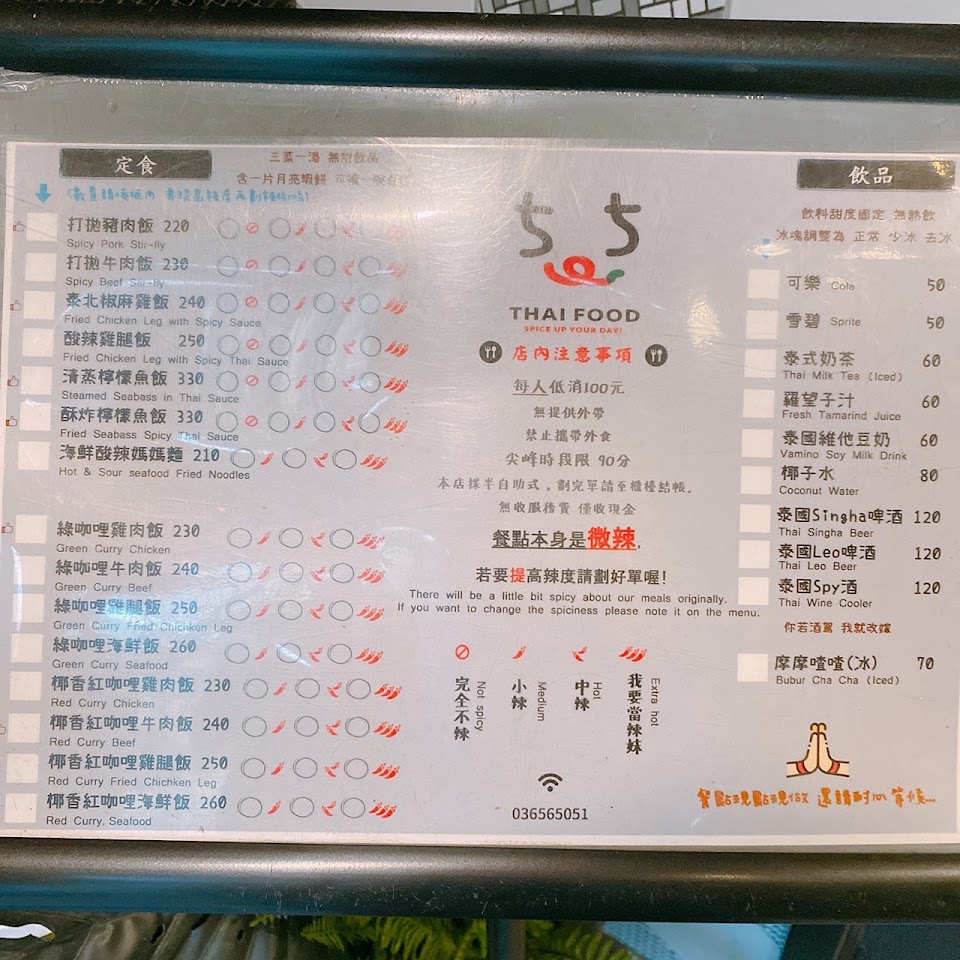 定食
三菜一湯 無附飲品
含一片月亮蝦餅
打拋豬肉飯 220
Spicy Pork Stir-fly
打拋牛肉飯 230
Spicy Beef Stir-fly
泰北椒麻雞飯 240
Fried Chicken Leg with Spicy Sauce
酸辣雞腿飯 250
Fried Chicken Leg with Spicy Thai Sauce
清蒸檸檬魚飯 330
Steamed Seabass in Thai Sauce
酥炸檸檬魚飯 330
Fried Seabass Spicy Thai Sauce
海鮮酸辣媽媽麵 210
Hot & Sour seafood Fried Noodles
綠咖哩雞肉飯 230
Green Curry Chicken
綠咖哩牛肉飯 240
Green Curry Beef
綠咖哩雞腿飯 250
Green Curry Fried Chichken Leg
綠咖哩海鮮飯 260
Green Curry Seafood
椰香紅咖哩雞肉飯 230
Red Curry Chicken
椰香紅咖哩牛肉飯 240
Red Curry Beef
椰香紅咖哩雞腿飯 250
Red Curry Fried Chichken Leg
椰香紅咖哩海鮮飯 260
Red Curry Seafood
THAI FOOD
SPICE UP YOUR DAY!
店內注意事項
每人低消100元
無提供外帶
禁止攜帶外食
尖峰時段限 90分
本店採半自助式，劃完單請至櫃檯結帳。
無收服務費 僅收現金
餐點本身是微辣,
若要提高辣度請劃好單喔!
There will be a little bit spicy about our meals originally.
If you want to change the spiciness please note it on the menu.
完全不辣 Not spicy
小辣 Medium
中辣 Hot
我要當辣妹 Extra hot
036565051
飲品
飲料甜度固定 無熱飲
冰塊調整為 正常 少冰 去冰
可樂 Cola 50
雪碧 Sprite 50
泰式奶茶 60
Thai Milk Tea (Iced)
羅望子汁 60
Fresh Tamarind Juice
泰國維他豆奶 60
Vamino Soy Milk Drink
椰子水 80
Coconut Water
泰國Singha啤酒 120
Thai Singha Beer
泰國Leo啤酒 120
Thai Leo Beer
泰國Spy酒 120
Thai Wine Cooler
你若酒駕 我就改嫁
摩摩喳喳(冰) 70
Bubur Cha Cha (Iced)
餐點現點現做 還請耐心等候...